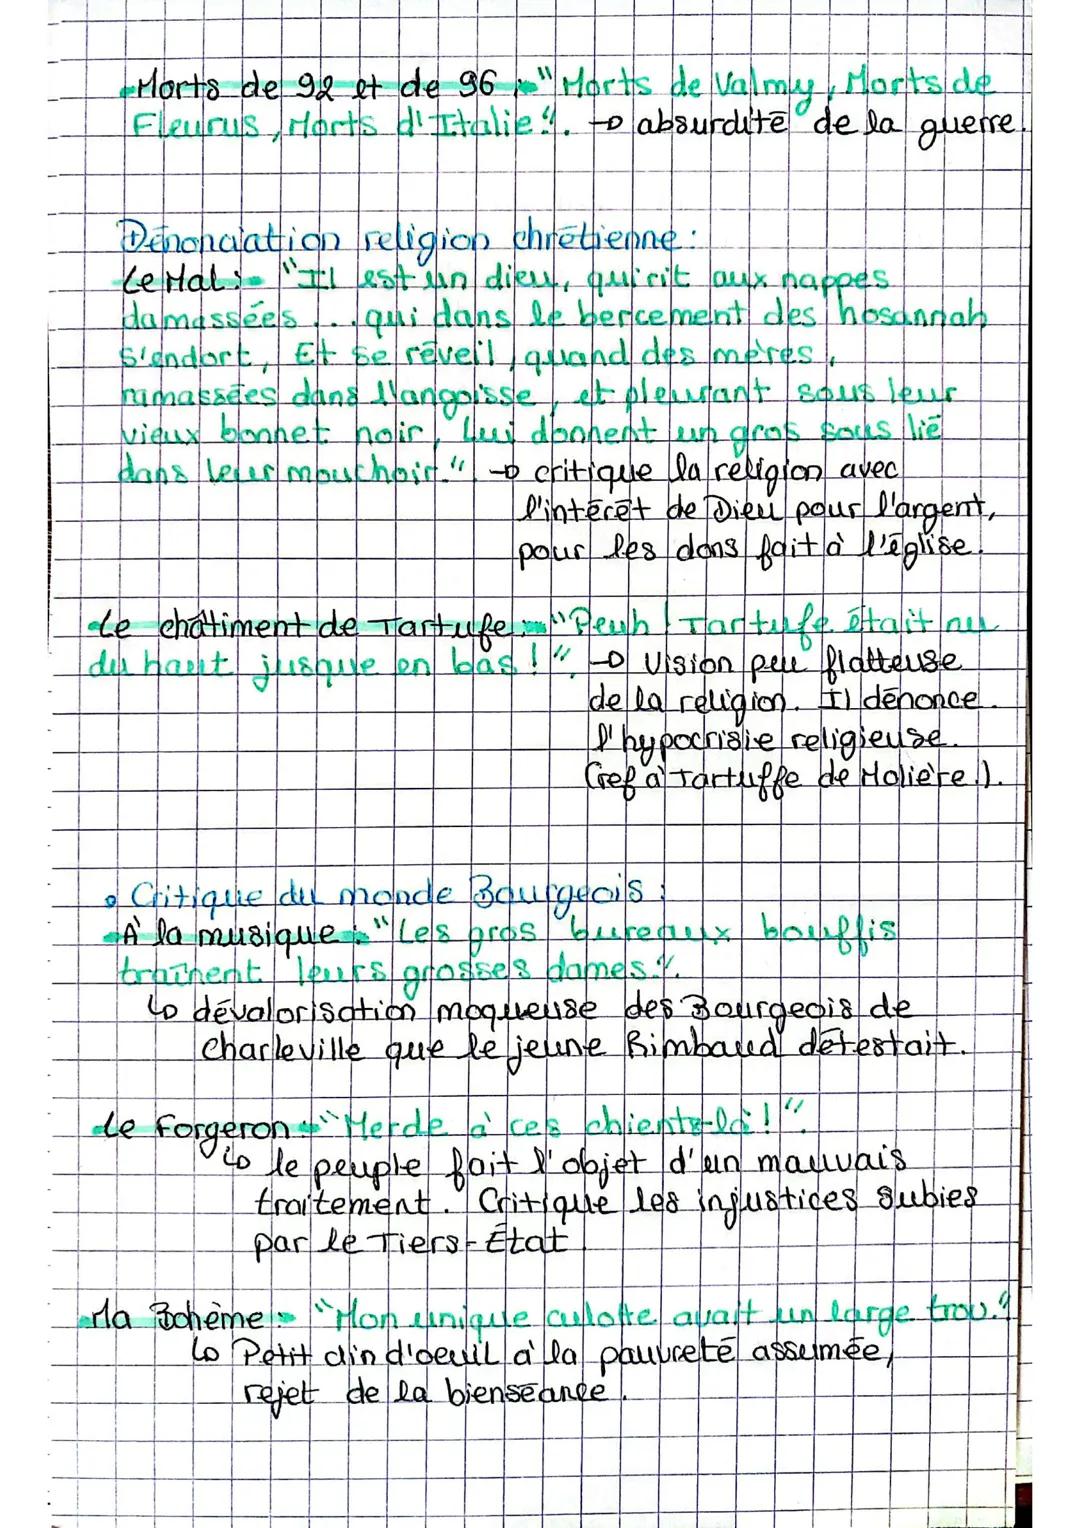 Morts de 92 et de 96 : "Morts de Valmy, Morts de
Fleurus, Morts d'Italie". → absurdité de la guerre.
Dénonciation religion chrétienne :
Le Mal : "Il est un dieu, qui rit aux nappes
damassées ... qui dans le bercement des hosannah
s'endort, Et se réveil, quand des mères,
ramassées dans l'angoisse, et pleurant sous leur
vieux bonnet noir, lui donnent un gros sous lié
dans leur mouchoir." → critique la religion avec
l'intérêt de Dieu pour l'argent,
pour les dons fait à l'église.
Le châtiment de Tartufe : "Peuh ! Tartufe était nu
du haut jusque en bas !" → Vision peu flatteuse
de la religion. Il dénonce
l'hypocrisie religieuse.
(ref à Tartuffe de Molière.).
• Critique du monde Bourgeois :
À la musique : "Les gros bureaux bouffis
traînent leurs grosses dames".
↳ dévalorisation moqueuse des Bourgeois de
Charleville que le jeune Rimbaud détestait.
Le Forgeron : "Merde à ces chients-là !"
↳ le peuple fait l'objet d'un mauvais
traitement. Critique les injustices subies
par le Tiers-État.
Ma Bohème : "Mon unique culotte avait un large trou."
↳ Petit clin d'oeuil à la pauvreté assumée,
rejet de la bienséance.